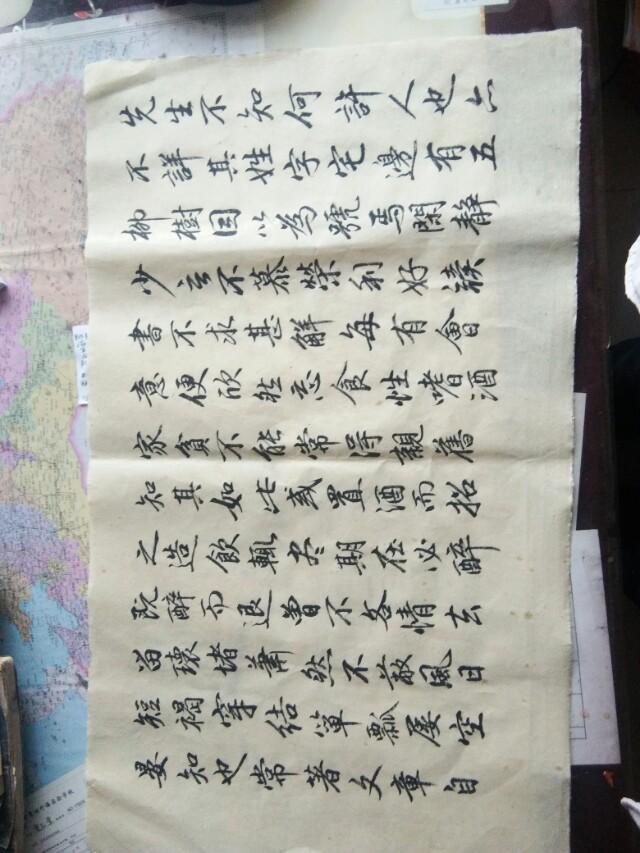 先生不知何許人也亦
不詳其姓字宅邊有五
柳樹因以為號焉閑靜
少言不慕榮利好讀
書不求甚解每有會
意便欣然忘食性嗜酒
家貧不能常得親舊
知其如此或置酒而招
之造飲輒尽期在必醉
既醉而退曾不吝情去
留環堵蕭然不蔽風日
短褐穿結簞瓢屢空
晏如也常著文章自